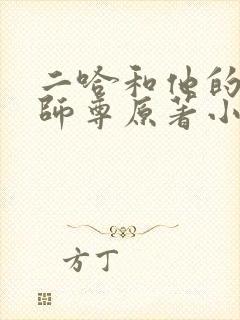 二哈和他的
師尊原著小
方丁